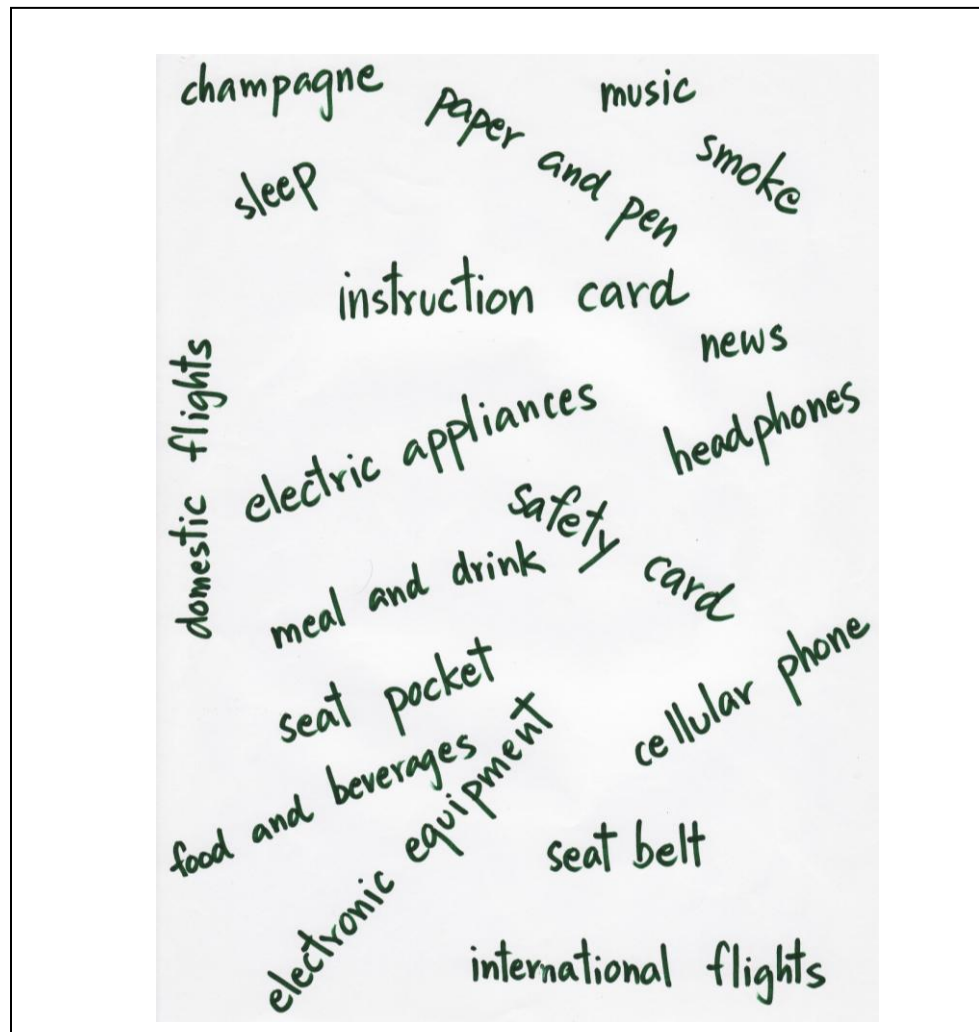 champagne
paper and pen
music
smoke
sleep
instruction card
news
domestic flights
electric appliances
headphones
safety card
meal and drink
seat pocket
cellular phone
food and beverages
electronic equipment
seat belt
international flights